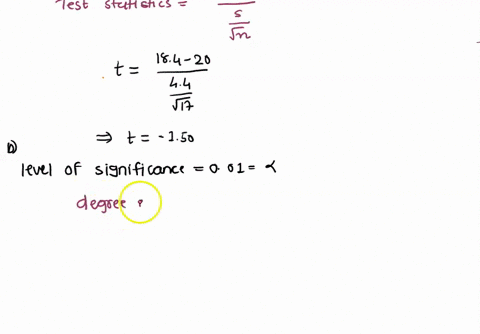 Test statistics =
s
√n
t = 18.4-20
4.4
√17
⇒ t = -1.50
b)
level of significance = 0.01 = α
degree